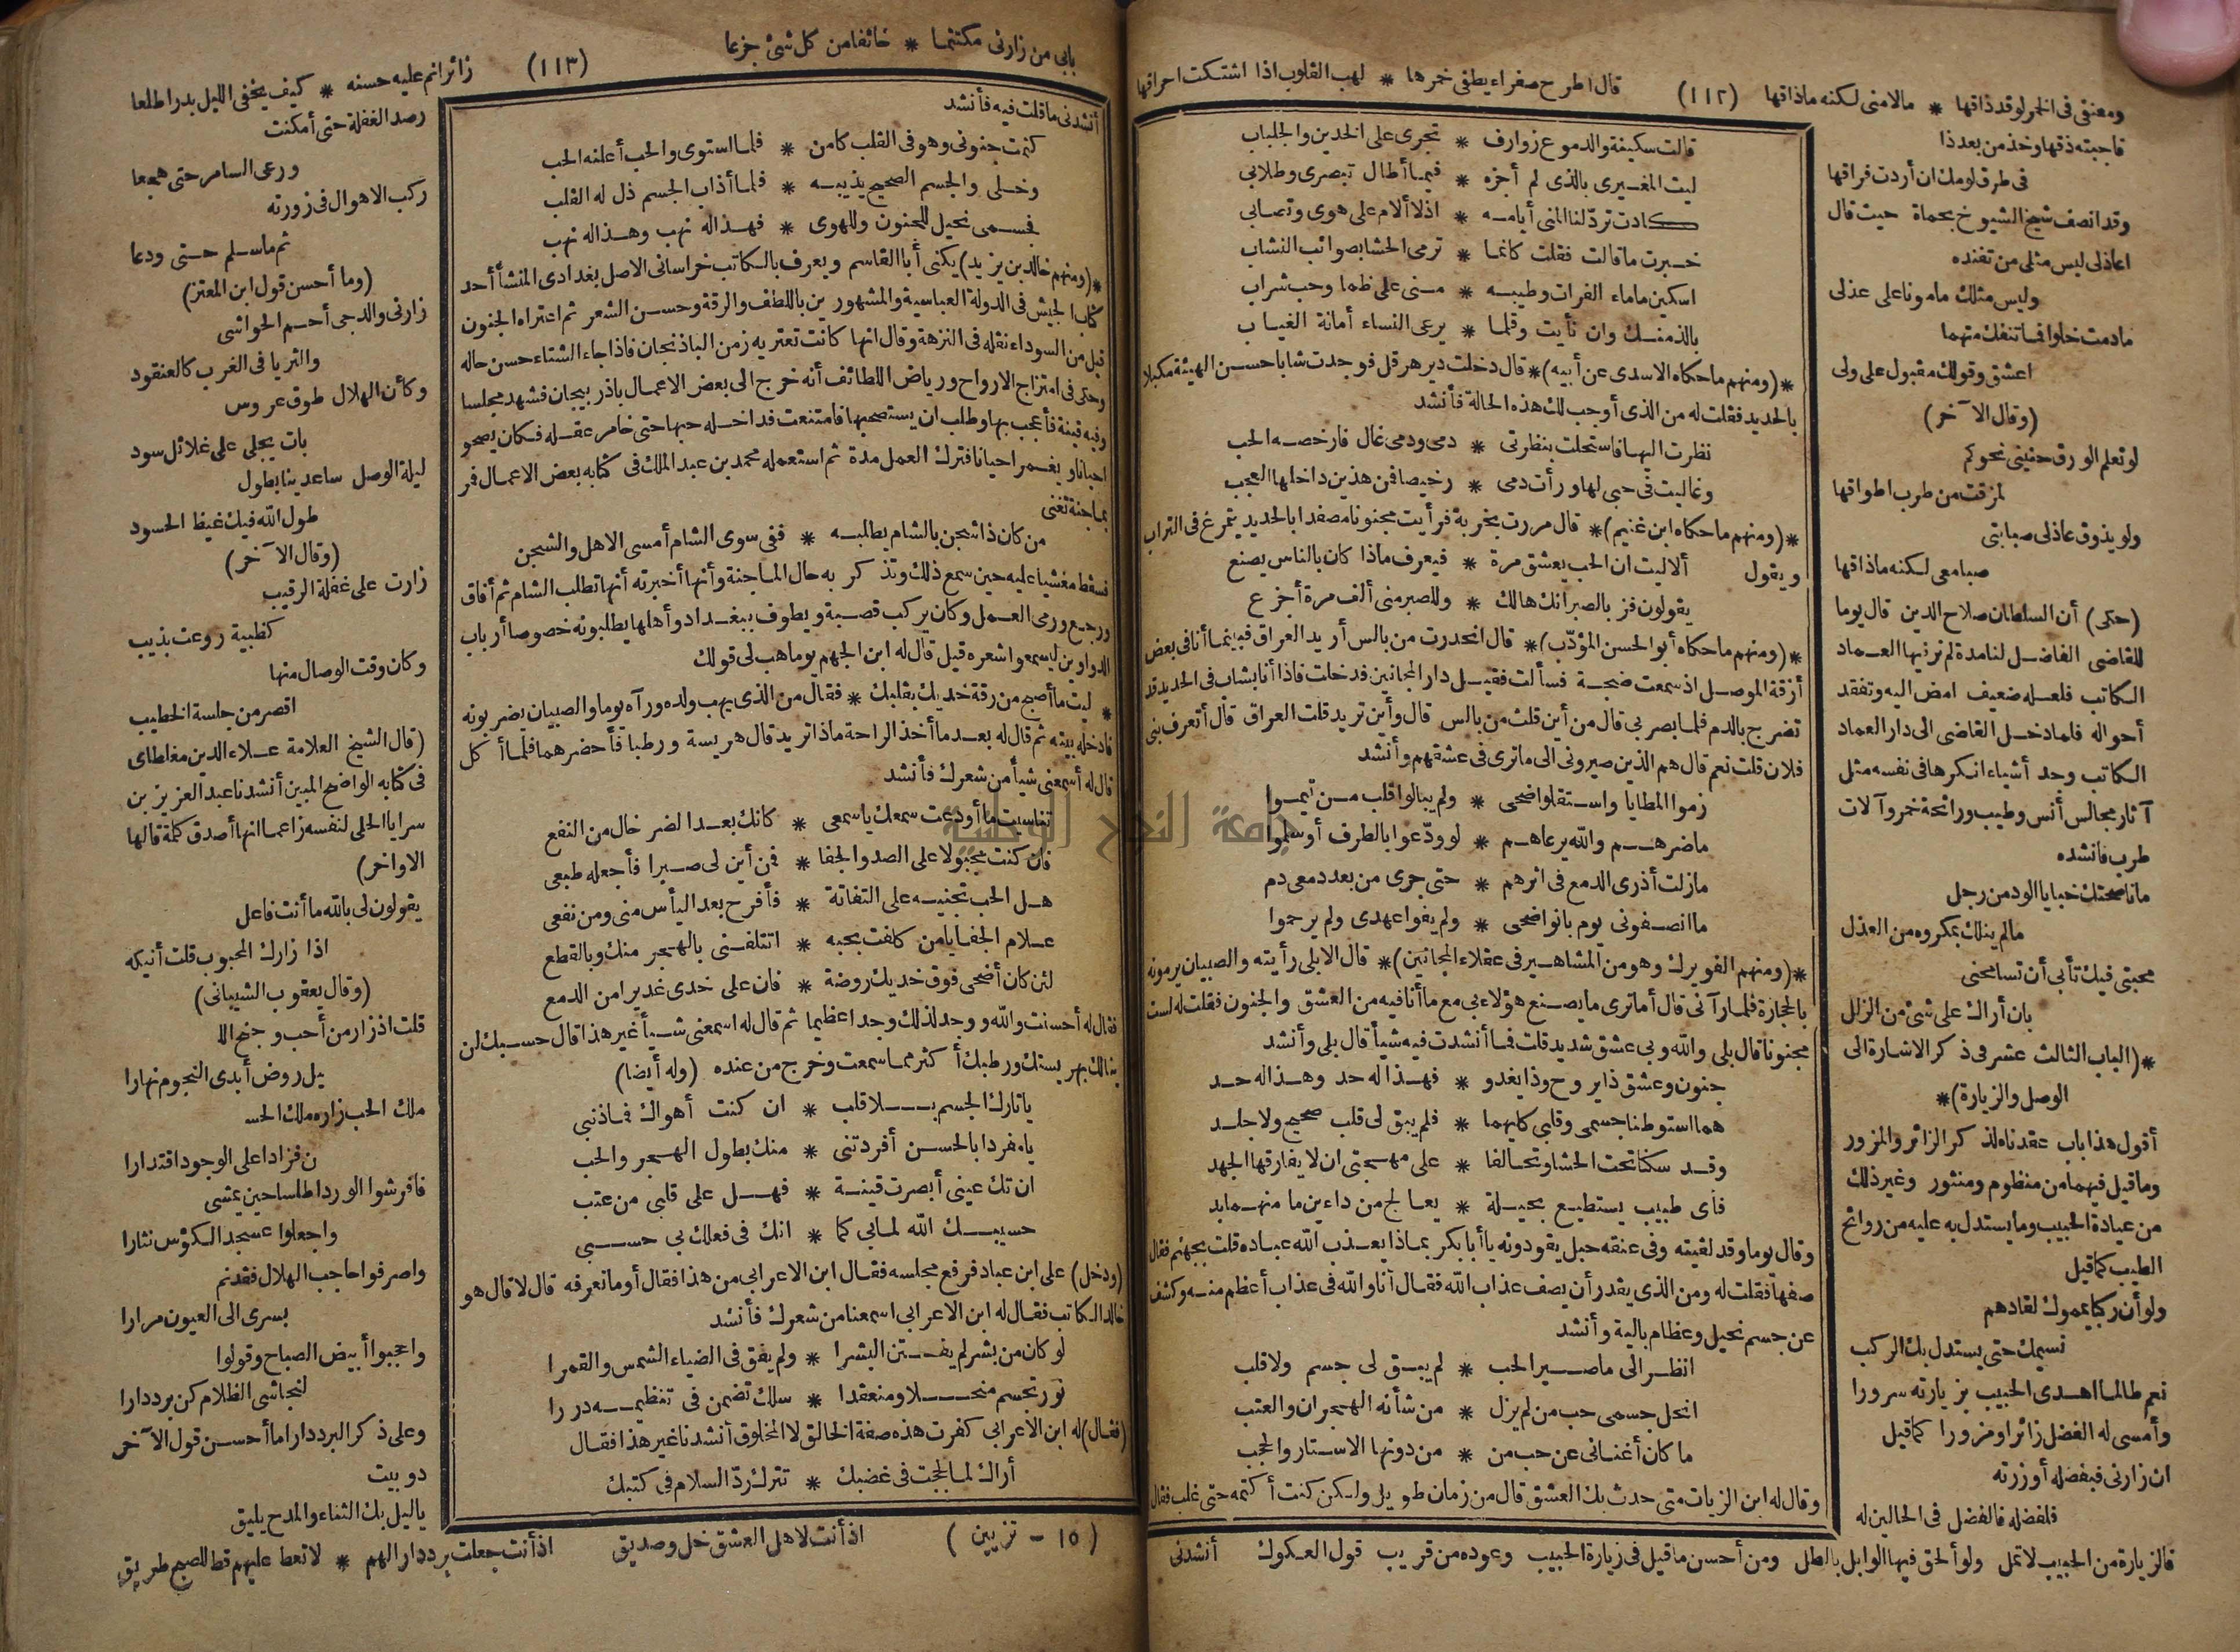 ومعنفى فى الخمر لو قد ذاقها * مالامنى لكنه ماذاقها
(١١٢)
قال اطرح صفراء يطفى خمرها * لهب القلوب اذا اشتكت احراقها
فاجبته ذقها وخذ من بعد ذا
فى طرق لومك ان أردت فراقها
وقد انصف شيخ الشيوخ بحماة حيث قال
اعاذلى ليس مثلى من تفنده
وليس مثلك مامونا على عذلى
مادمت خلوا فما تنفك متهما
اعشق وقولك مقبول على ولى
(وقال الآخر)
لو تعلم الورق حنينى نحوكم
لمزقت من طرب اطواقها
ولو يذوق عاذلى صبابتى
صبا معى لكنه ماذاقها
(حكى) أن السلطان صلاح الدين قال يوما
للقاضى الفاضل لنا مدة لم نر فيها العماد
الكاتب فلعله ضعيف امض اليه وتفقد
أحواله فلما دخل القاضى الى دار العماد
الكاتب وجد أشياء انكرها فى نفسه مثل
آثار مجالس أنس وطيب ورائحة خمر وآلات
طرب فانشده
ماناصحتك خبايا الود من رجل
مالم ينلك بمكروه من العذل
محبتى فيك تأبى أن تسامحنى
بان أراك على شئ من الزلل
*(الباب الثالث عشر فى ذكر الاشارة الى
الوصل والزيارة)*
أقول هذا باب عقدناه لذكر الزائر والمزور
وماقيل فيهما من منظوم ومنثور وغير ذلك
من عيادة الحبيب وما يستدل به عليه من روائح
الطيب كما قيل
ولو أن ركبا يمموك لقادهم
نسيمك حتى يستدل بك الركب
نعم طالما اهدى الحبيب بزيارته سرورا
وأمسى له الفضل زائرا ومزورا كما قيل
ان زارنى فبفضله أو زرته
فلفضله فالفضل فى الحالين له
فالزيارة من الحبيب لا تمل ولو ألحق فيها الوابل بالطل ومن أحسن ما قيل فى زيارة الحبيب وعوده من قريب قول العكوك
قالت سكينة والدموع زوارف * تجرى على الخدين والجلباب
ليت المغيرى بالذى لم أجزه * فيما أطال تبصرى وطلابى
كادت تردّ لنا المنى أيامه * اذ لا ألام على هوى وتصابى
خبرت ماقالت فقلت كانما * ترمى الحشا بصوائب النشاب
اسكين ماماء الفرات وطيبه * منى على ظما وحب شراب
بالذمنك وان نأيت وقلما * يرعى النساء أمانة الغياب
*(ومنهم ماحكاه الاسدى عن أبيه)* قال دخلت دير هرقل فوجدت شابا حسن الهيئة مكبلا
بالحديد فقلت له من الذى أوجب لك هذه الحالة فأنشد
نظرت اليها فاستحلت بنظرتى * دمى ودمى غال فارخصه الحب
وغاليت فى حبى لها ورأت دمى * رخيصا فن هذين داخلها العجب
*(ومنهم ماحكاه ابن غنيم)* قال مررت بخربة فرأيت مجنونا مصفدا بالحديد يتمرغ فى التراب
ويقول ألاليت ان الحب يعشق مرة * فيعرف ماذا كان بالناس يصنع
يقولون فز بالصبر انك هالك * وللصبر منى ألف مرة أخرع
*(ومنهم ماحكاه أبو الحسن المؤدّب)* قال انحدرت من بالس أريد العراق فبينما أنا فى بعض
أزقة الموصل اذ سمعت ضجة فسألت فقيل دار المجانين فدخلت فاذا أنا بشاب فى الحديد قد
تضرج بالدم فلما بصر بى قال من أين قلت من بالس قال وأين تريد قلت العراق قال أتعرف بنى
فلان قلت نعم قال هم الذين صيرونى الى ماترى فى عشقهم وأنشد
زموا المطايا واستقلوا ضحى * ولم يبالوا قلب من تيموا
ماضرهم والله يرعاهم * لو ودّعوا بالطرف أوسلموا
مازلت أذرى الدمع فى اثرهم * حتى جرى من بعد دمعى دم
ما انصفونى يوم بانوا ضحى * ولم يفوا عهدى ولم يرحموا
*(ومنهم الفويرك وهو من المشاهير فى عقلاء المجانين)* قال الابلى رأيته والصبيان يرمونه
بالحجارة فلما رآنى قال أما ترى مايصنع هؤلاء بى مع ما أنا فيه من العشق والجنون فقلت له لست
مجنونا قال بلى والله وبى عشق شديد قلت فما أنشدت فيه شيأ قال بلى وأنشد
جنون وعشق ذا يروح وذا يغدو * فهذا له حد وهذا له حد
هما استوطنا جسمى وقلبى كليهما * فلم يبق لى قلب صحيح ولا جلد
وقد سكنا تحت الحشا وتحالفا * على مهجتى ان لا يفارقها الجهد
فأى طبيب يستطيع بحيلة * يعالج من داءين ما منهما بد
وقال يوما وقد لقيته وفى عنقه حبل يقودونه يا أبا بكر بماذا يعذب الله عباده قلت بجهنم فقال
صفها فقلت له ومن الذى يقدر أن يصف عذاب الله فقال أنا والله فى عذاب أعظم منه وكشف
عن جسم نحيل وعظام بالية وأنشد
انظر الى ماصير الحب * لم يبق لى جسم ولا قلب
انحل جسمى حب من لم يزل * من شأنه الهجران والعتب
ما كان أغنانى عن حب من * من دونها الاستار والحجب
وقال له ابن الزيات متى حدث بك العشق قال من زمان طويل ولكن كنت أكتمه حتى غلب فقال
أنشدنى
زائر انم عليه حسنه * كيف يخفى الليل بدرا طلعا
(١١٣)
بابى من زارنى مكتتما * خائفا من كل شئ جزعا
رصد الغفلة حتى أمكنت
ورعى السامر حتى هجعا
ركب الاهوال فى زورته
ثم ماسلم حتى ودعا
(وما أحسن قول ابن المعتز)
زارنى والدجى أحم الحواشى
والثريا فى الغرب كالعنقود
وكأن الهلال طوق عروس
بات يجلى على غلائل سود
ليلة الوصل ساعدينا بطول
طول الله فيك غيظ الحسود
(وقال الآخر)
زارت على غفلة الرقيب
كظبية روعت بذيب
وكان وقت الوصال منها
اقصر من جلسة الخطيب
(قال الشيخ العلامة علاء الدين مغلطاى
فى كتابه الواضح المبين أنشدنا عبد العزيز بن
سرايا الحلى لنفسه زاعما انها أصدق كلمة قالها
الاواخر)
يقولون لى بالله ما أنت فاعل
اذا زارك المحبوب قلت أنيكه
(وقال يعقوب الشيبانى)
قلت اذ زار من أحب وجنح الل
يل روض أبدى النجوم نهارا
ملك الحب زاره ملك الحس
ن فزادا على الوجود اقتدارا
فأفرشوا الورد اطلسا حين يمشى
واجعلوا عسجد الكؤس نثارا
واصرفوا حاجب الهلال فقد نم
بسرى الى العيون مرارا
واعجبوا أبيض الصباح وقولوا
لنجاشى الظلام كن برددارا
وعلى ذكر البرددار اما أحسن قول الآخر
دوبيت
ياليل بك الثناء والمدح يليق
أنشدنى ماقلت فيه فأنشد
كتمت جنونى وهو فى القلب كامن * فلما استوى والحب أعلنه الحب
وخلى والجسم الصحيح يذيبه * فلما أذاب الجسم ذل له القلب
فجسمى نحيل للجنون وللهوى * فهذا له نهب وهذا له نهب
*(ومنهم خالد بن يزيد) يكنى أبا القاسم ويعرف بالكاتب خراسانى الاصل بغدادى المنشأ أحد
كتاب الجيش فى الدولة العباسية والمشهورين باللطف والرقة وحسن الشعر ثم اعتراه الجنون
قيل من السوداء نقله فى النزهة وقال انها كانت تعتريه زمن الباذنجان فاذا جاء الشتاء حسن حاله
وحكى فى امتزاج الارواح ورياض اللطائف أنه خرج الى بعض الاعمال باذربيجان فشهد مجلسا
وفيه قينة فأعجب بها وطلب ان يستصحبها فامتنعت فداخله حبها حتى خامر عقله فكان يصحو
احيانا ويغمر احيانا فترك العمل مدة ثم استعمله محمد بن عبد الملك فى كتابه بعض الاعمال فمر
بماجنة تغنى
من كان ذا شجن بالشام يطلبه * ففى سوى الشام أمسى الاهل والشجن
فسقط مغشيا عليه حين سمع ذلك وتذكر به حال الماجنة وأنها أخبرته أنها تطلب الشام ثم أفاق
ورجع ورمى العمل وكان يركب قصبة ويطوف ببغداد وأهلها يطلبونه خصوصا أرباب
الدواوين ليسمعوا شعره قيل قال له ابن الجهم يوما هب لى قولك
* ليت ما أصبح من رقة خديك بقلبك * فقال من الذى يهب ولده ورآه يوما والصبيان يضربونه
فادخله بيته ثم قال له بعدما أخذ الراحة ماذا تريد قال هريسة ورطبا فأحضرهما فلما أكل
قال له أسمعنى شيأ من شعرك فأنشد
تناسيت ما أودعت سمعك ياسمعى * كانك بعد الضر خال من النفع
فان كنت مجبولا على الصد والجفا * فمن أين لى صبرا فأجعله طبعى
هل الحب تجنيه على التفاتة * فأفرح بعد اليأس منى ومن نفعى
علام الجفا يا من كلفت بحبه * اتتلفنى بالهجر منك وبالقطع
لئن كان أضحى فوق خديك روضة * فان على خدى غديرا من الدمع
فقال له أحسنت والله ووجد لذلك وجدا عظيما ثم قال له اسمعنى شيأ غير هذا قال حسبك لن
ينالك بهريستك ورطبك أكثر مما سمعت وخرج من عنده (وله أيضا)
ياتارك الجسم بلا قلب * ان كنت أهواك فما ذنبى
يامفردا بالحسن أفردتنى * منك بطول الهجر والحب
ان تك عينى أبصرت فتنة * فهل على قلبى من عتب
حسيبك الله لما بى كما * انك فى فعلك بى حسبى
(ودخل) على ابن عباد فرفع مجلسه فقال ابن الاعرابى من هذا فقال أوما تعرفه قال لا قال هو
خالد الكاتب فقال له ابن الاعرابى اسمعنا من شعرك فأنشد
لو كان من بشر لم يفتن البشرا * ولم يفق فى الضياء الشمس والقمرا
نور تجسم منحلا ومنعقدا * سلك تضمن فى تنظيمه دررا
(فقال) له ابن الاعرابى كفرت هذه صفة الخالق لا المخلوق أنشدنا غير هذا فقال
أراك لما لججت فى غضبك * تترك ردّ السلام فى كتبك
(١٥ - تزيين)
اذ أنت لاهل العشق خل وصديق
اذ أنت جعلت برددارا لهم * لا تعط عليهم قط للصبح طريق
جامعة النجاح الوطنية